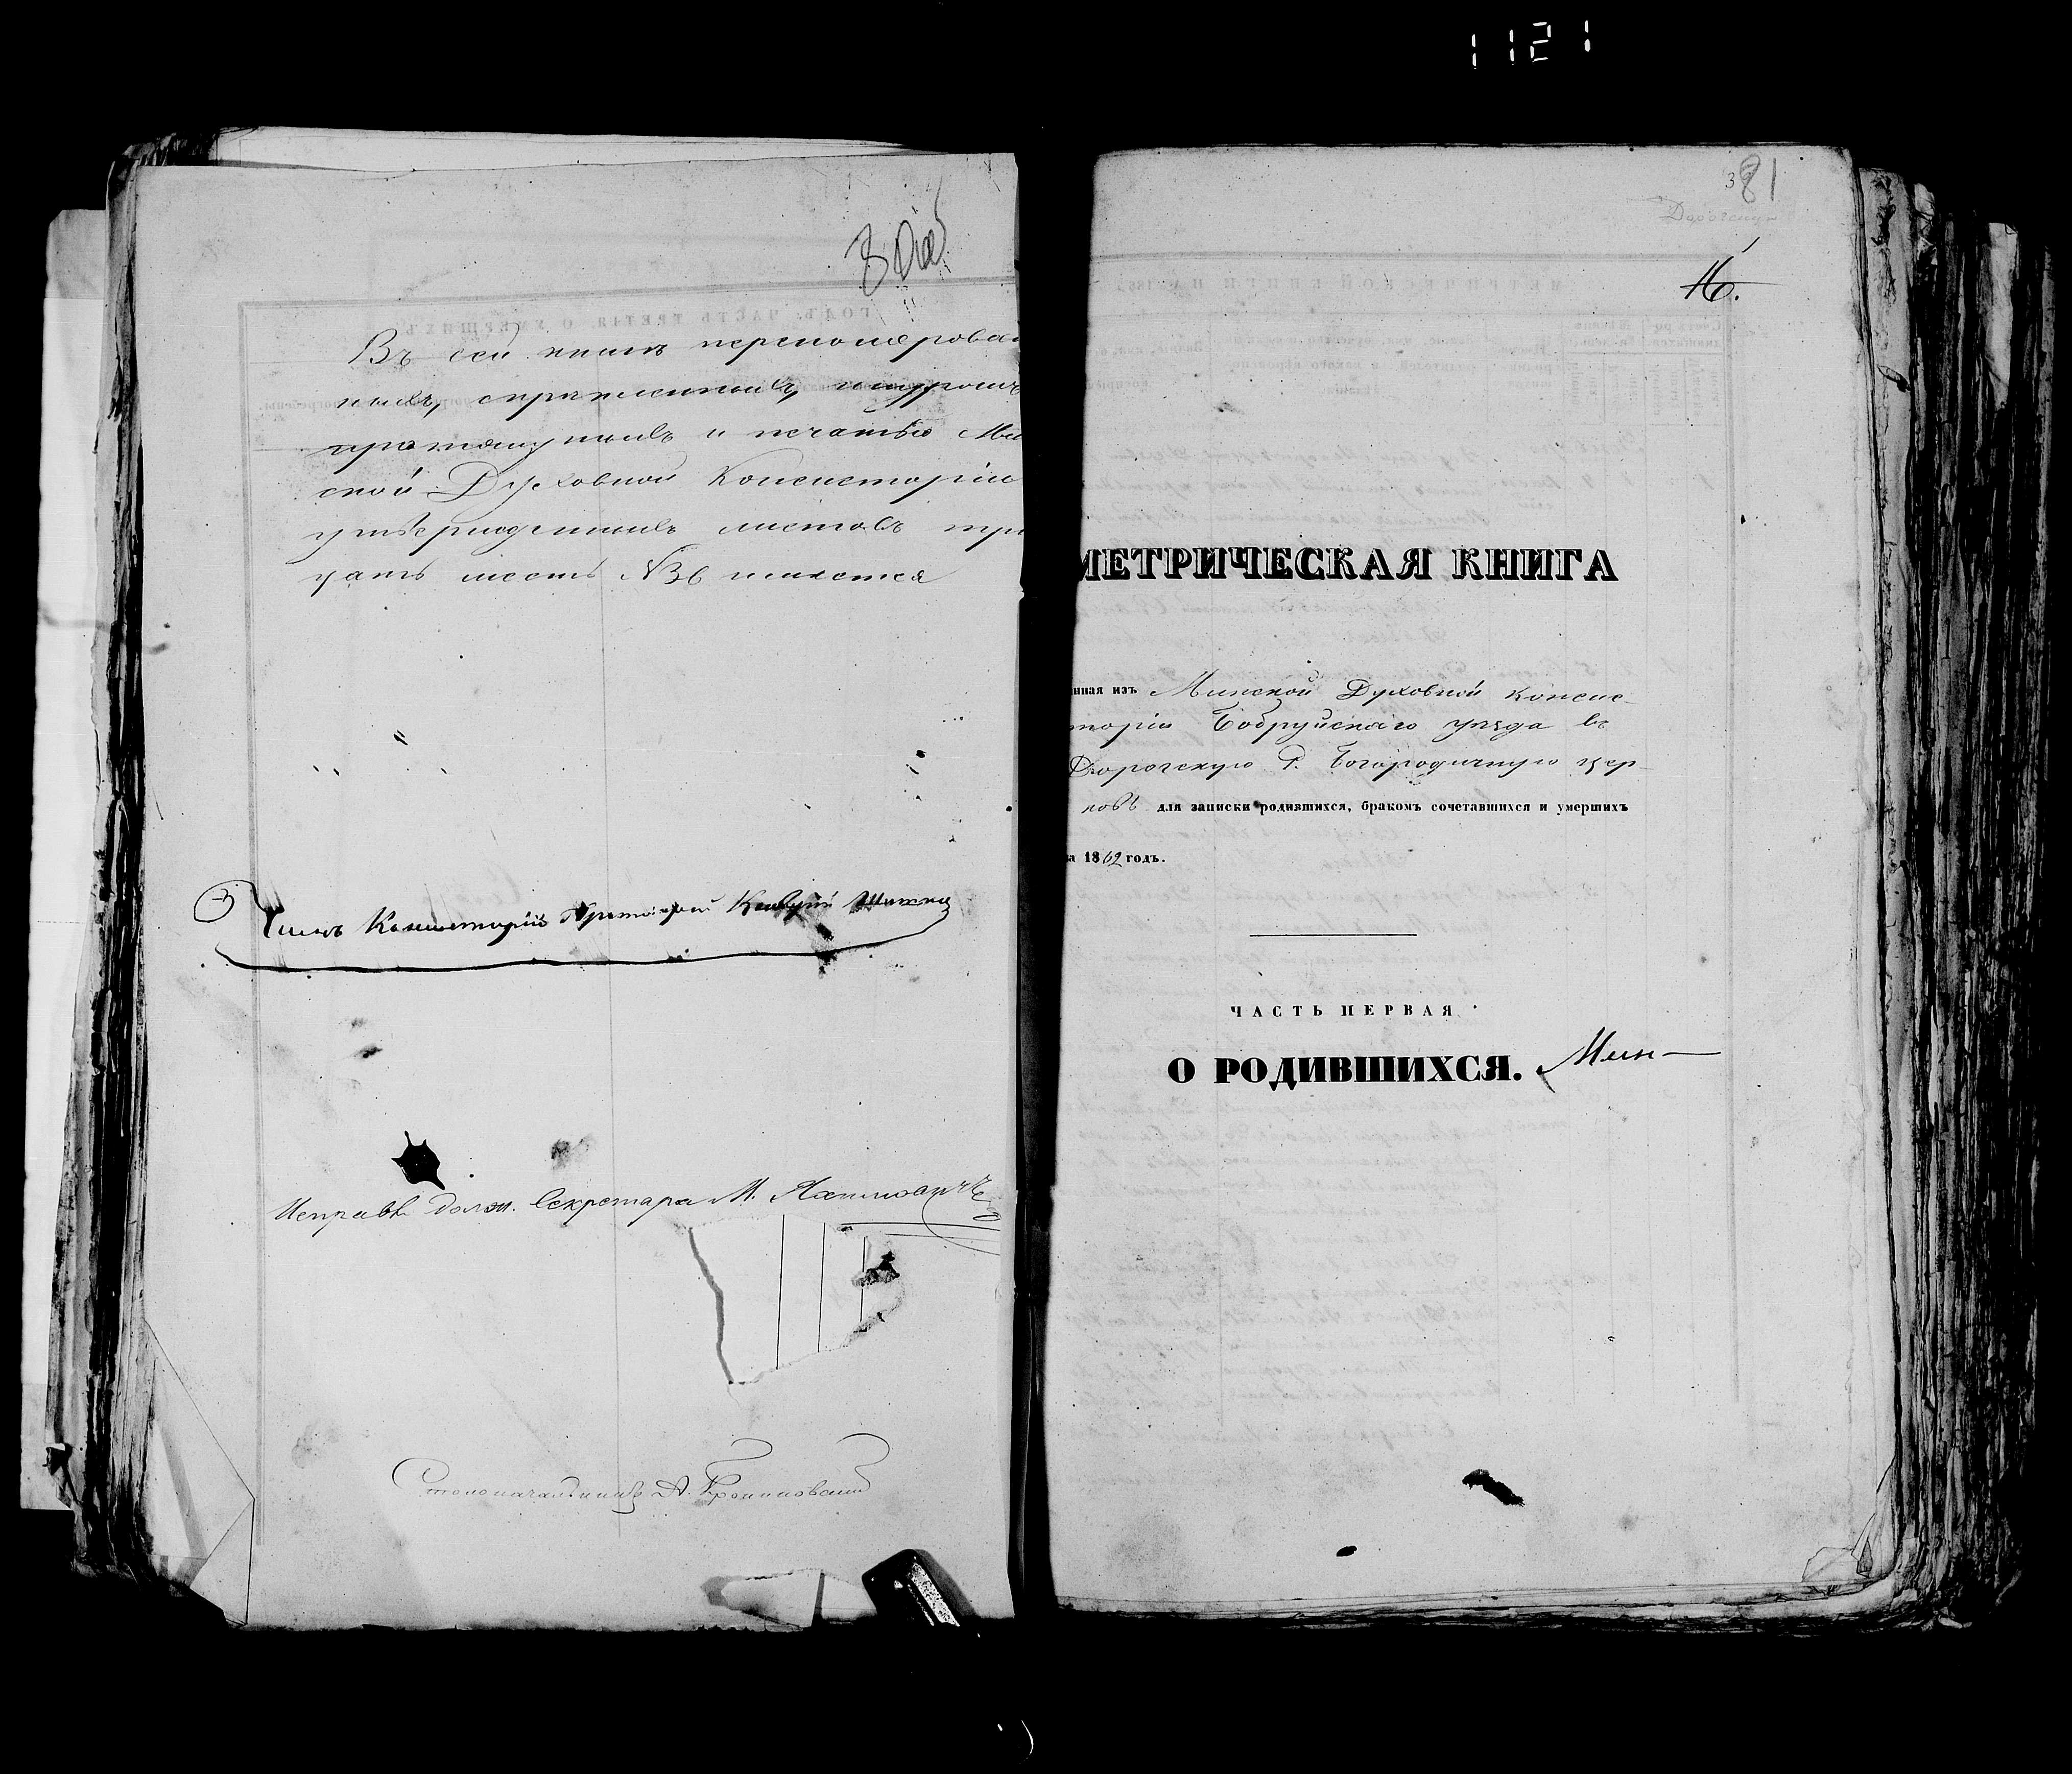 1121
80об
Въ сей книгѣ перенумерован
ныхъ, скрѣпленныхъ, и шнуромъ
и печатью Мин
ской Духовной Консисторіи
утвержденныхъ листовъ три
цать шесть №36 имѣется
Членъ Консисторіи Протоіерей
Исправл. должн. Секретаря М.
Столоначальникъ А.
381
16.
МЕТРИЧЕСКАЯ КНИГА
нная изъ Минской Духовной Консис-
торіи Бобруйскаго уѣзда въ
Дорогскую Р. Богородичную цер-
ковь для записки родившихся, бракомъ сочетавшихся и умершихъ
на 1862 годъ.
ЧАСТЬ ПЕРВАЯ
О РОДИВШИХСЯ. Мин-